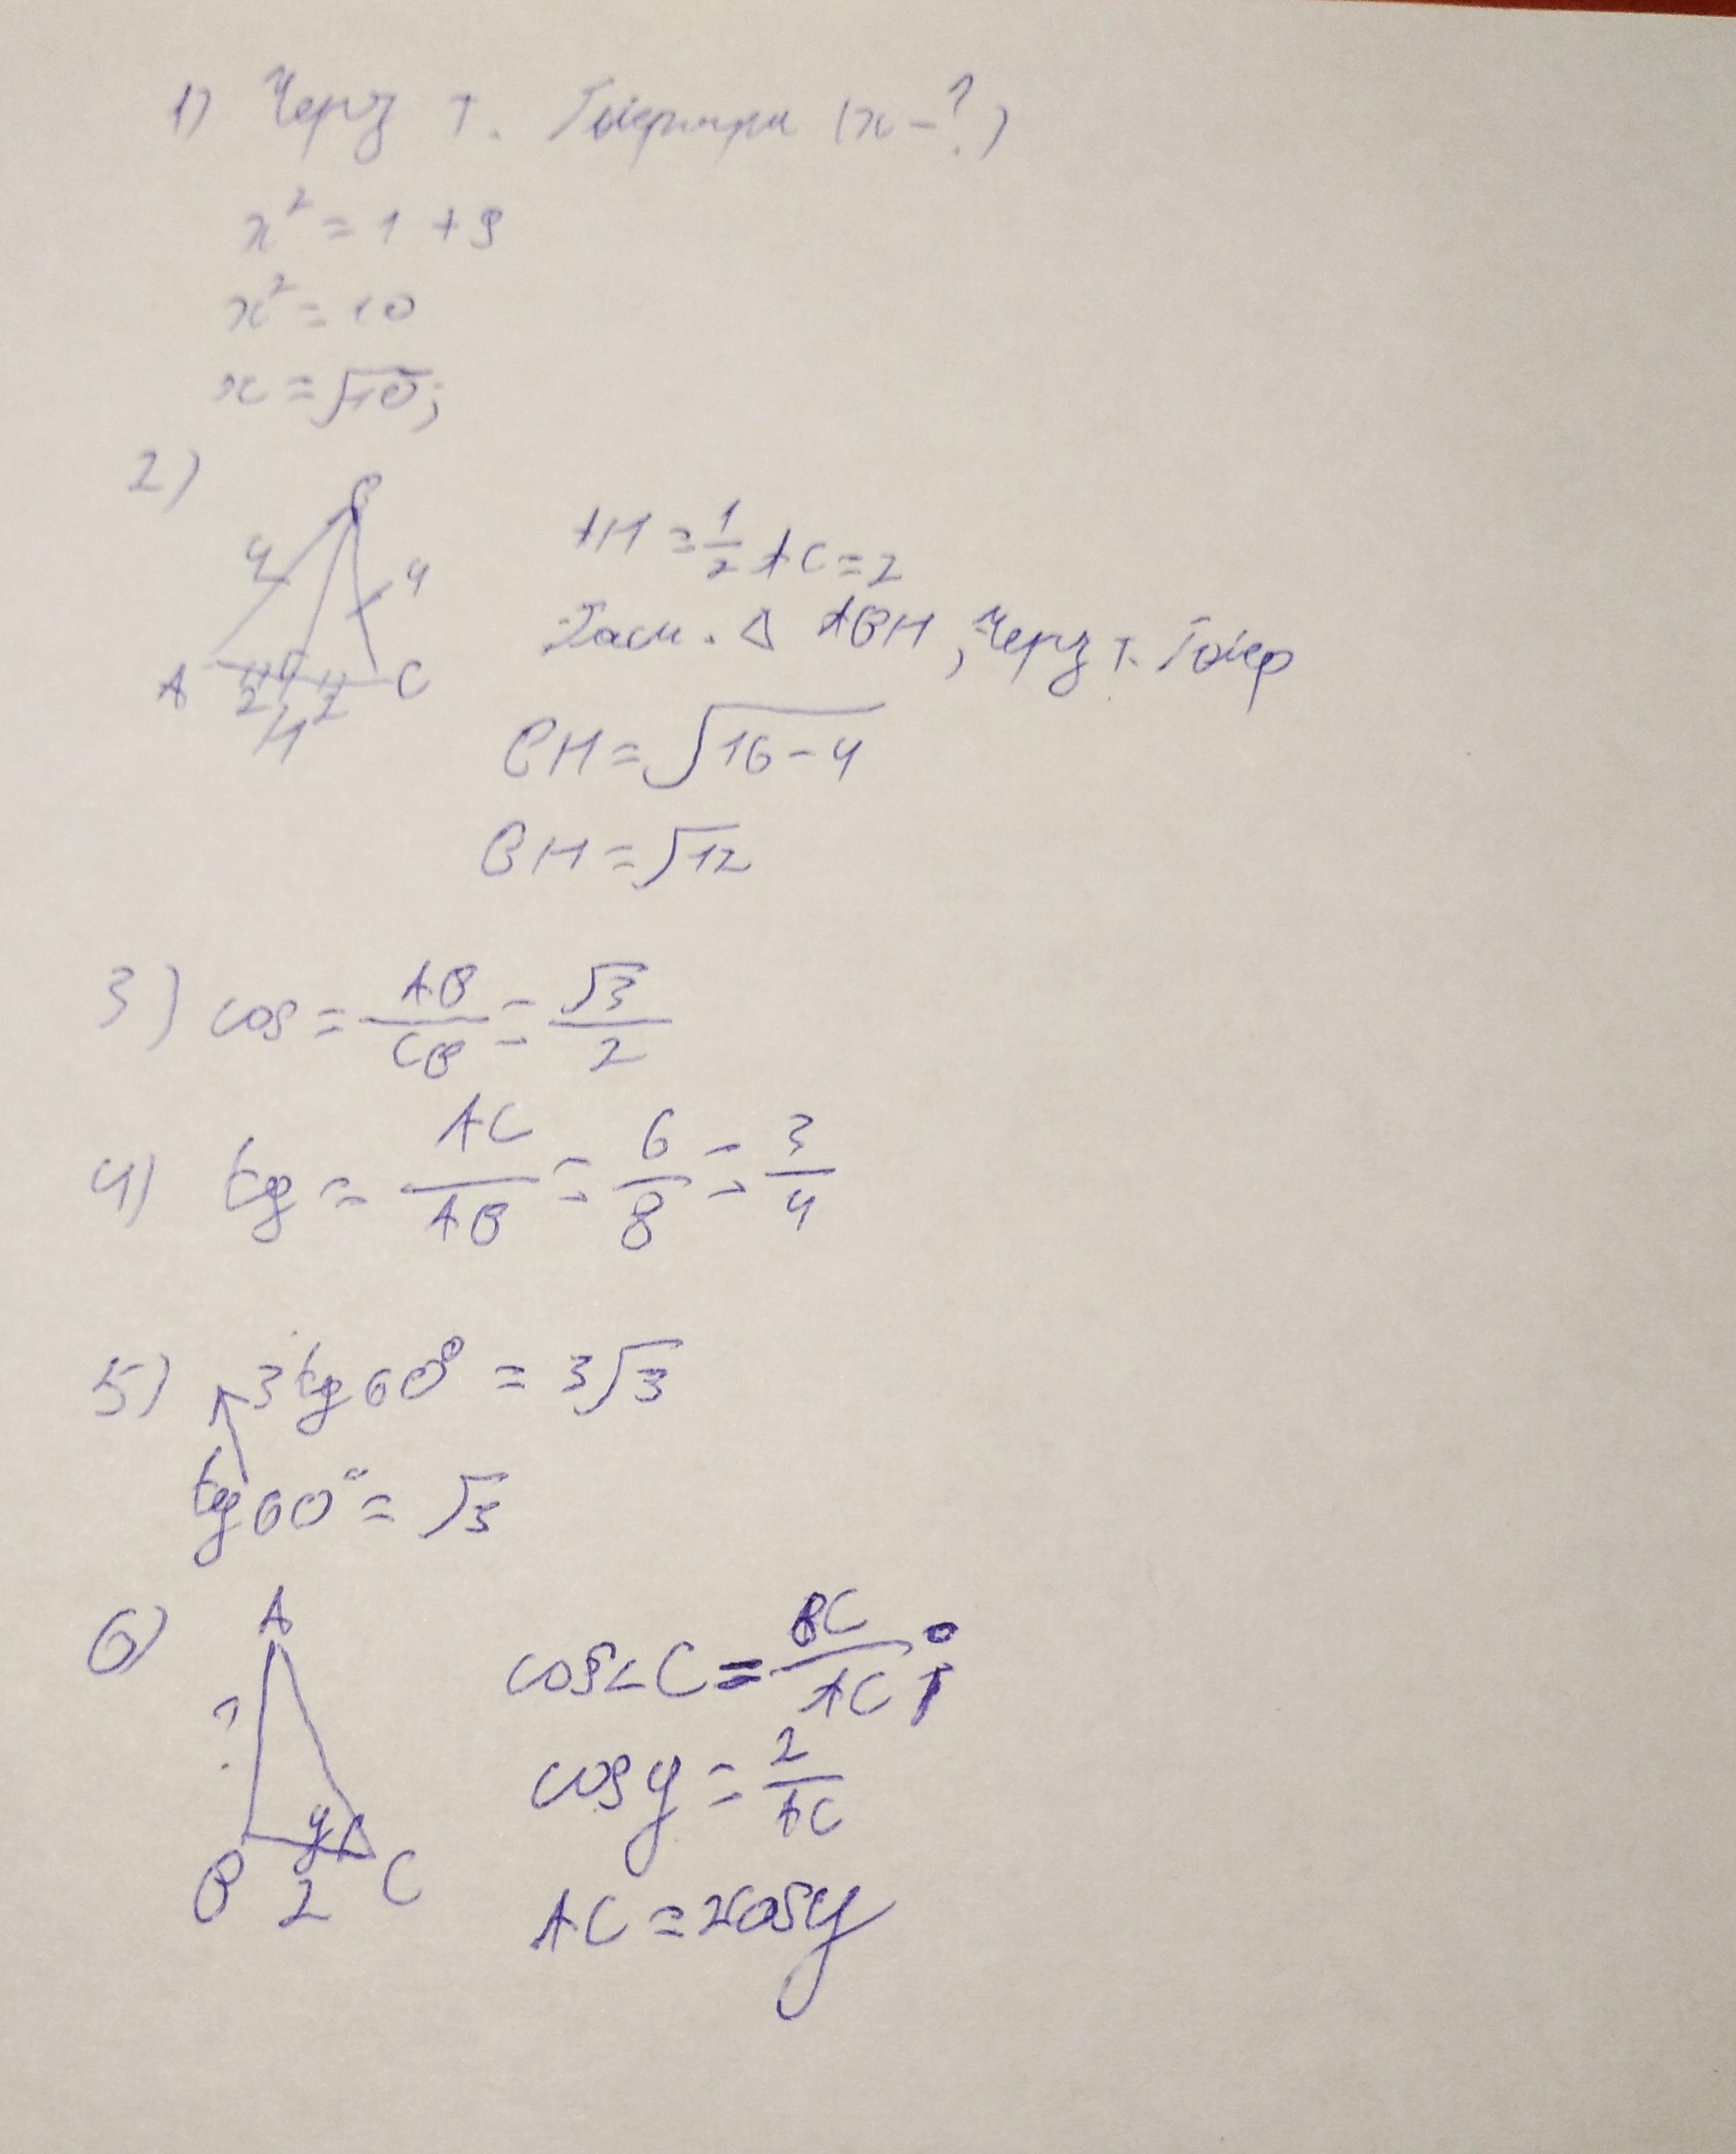 1) Через т. (x-?)
x² = 1 + 9
x² = 10
x = √10;
2)
B
4
4
A
2
2
C
H
AH = 1/2 AC = 2
Δ ABH, Через т.
BH = √16-4
BH = √12
3) cos = AB/CB = √3/2
4) tg = AC/AB = 6/8 = 3/4
5) 3tg60° = 3√3
tg60° = √3
6)
A
?
B
y
2
C
cos∠C = BC/AC;
cosy = 2/AC
AC = 2cosy